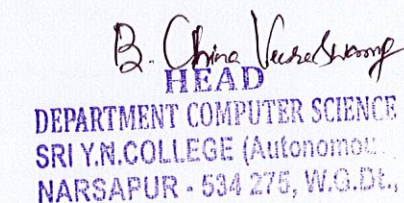 B. China Veeraswamy
HEAD
DEPARTMENT COMPUTER SCIENCE
SRI Y.N.COLLEGE (Autonomou
NARSAPUR - 534 275, W.G.Dt.,